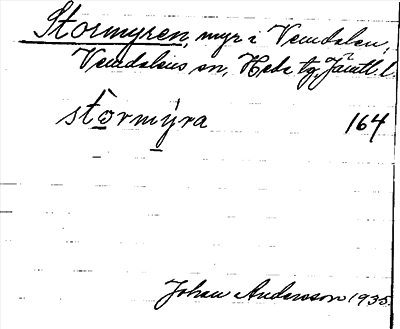 Stormyren, myr i Vemdalen,
Vemdalens sn, Hede tg, Jämtl. l.
stòrmýra 164
Johan Andersson 1935.